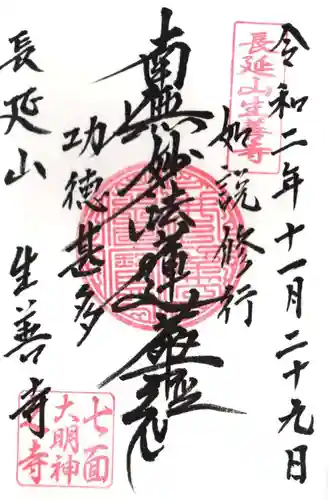 令和二年十一月二十九日
長延山生善寺
如説修行
南無妙法蓮華経
功徳甚多
長延山
生善寺
七面
大明神
寺